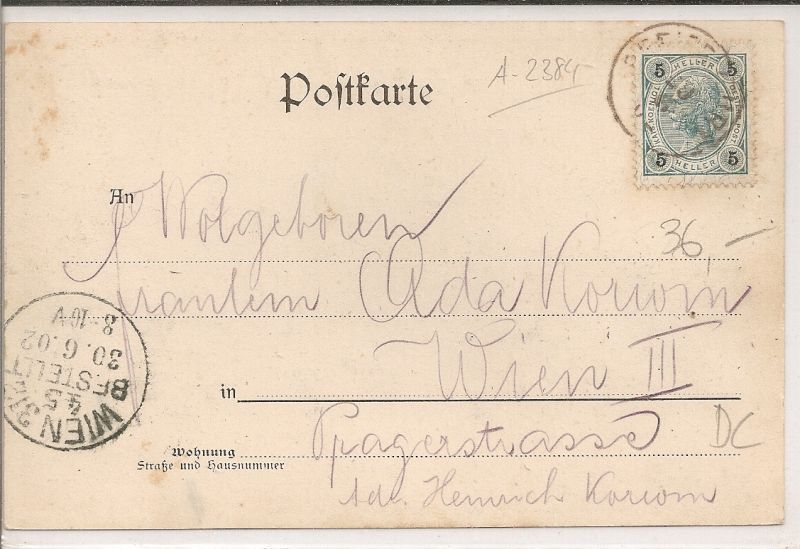 Postkarte
A-2384
5 HELLER 5
KAIS. KOENIGL. OESTERR. POST
5 HELLER 5
An
Wolgeboren
36,—
Fräulein Ada Koriom
Wien III
in
Wohnung
Straße und Hausnummer
Pragerstrasse
DC
Adr. Heinrich Koriom
WIEN 3/3
45
BESTELLT
30.6.02
8-10V